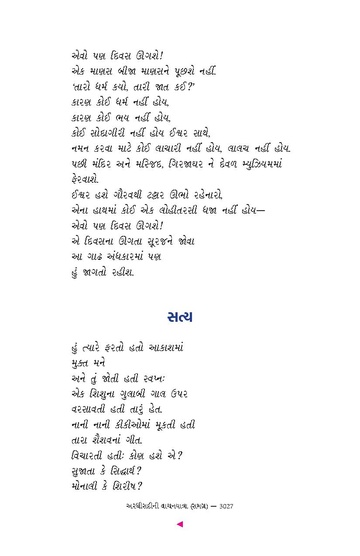 એવો પણ દિવસ ઊગશે!
એક માણસ બીજા માણસને પૂછશે નહીં.
‘તારો ધર્મ કયો, તારી જાત કઈ?’
કારણ કોઈ ધર્મ નહીં હોય,
કારણ કોઈ ભય નહીં હોય,
કોઈ સોદાગીરી નહીં હોય ઈશ્વર સાથે.
નમન કરવા માટે કોઈ લાચારી નહીં હોય, લાલચ નહીં હોય.
પછી મંદિર અને મસ્જિદ, ગિરજાઘર ને દેવળ મ્યુઝિયમમાં
ફેરવાશે.
ઈશ્વર હશે ગૌરવથી ટટ્ટાર ઊભો રહેનારો,
એના હાથમાં કોઈ એક લોહીતરસી ધજા નહીં હોય—
એવો પણ દિવસ ઊગશે!
એ દિવસના ઊગતા સૂરજને જોવા
આ ગાઢ અંધકારમાં પણ
હું જાગતો રહીશ.
સત્ય
હું ત્યારે ફરતો હતો આકાશમાં
મુક્ત મને
અને તું જોતી હતી સ્વપ્નઃ
એક શિશુના ગુલાબી ગાલ ઉપર
વરસાવતી હતી તારું હેત.
નાની નાની કીકીઓમાં મૂકતી હતી
તારા શૈશવનાં ગીત.
વિચારતી હતીઃ કોણ હશે એ?
સુજાતા કે સિદ્ધાર્થ?
મોનાલી કે શિરીષ?
અરધીસદીની વાચનયાત્રા (સમગ્ર) — 3027